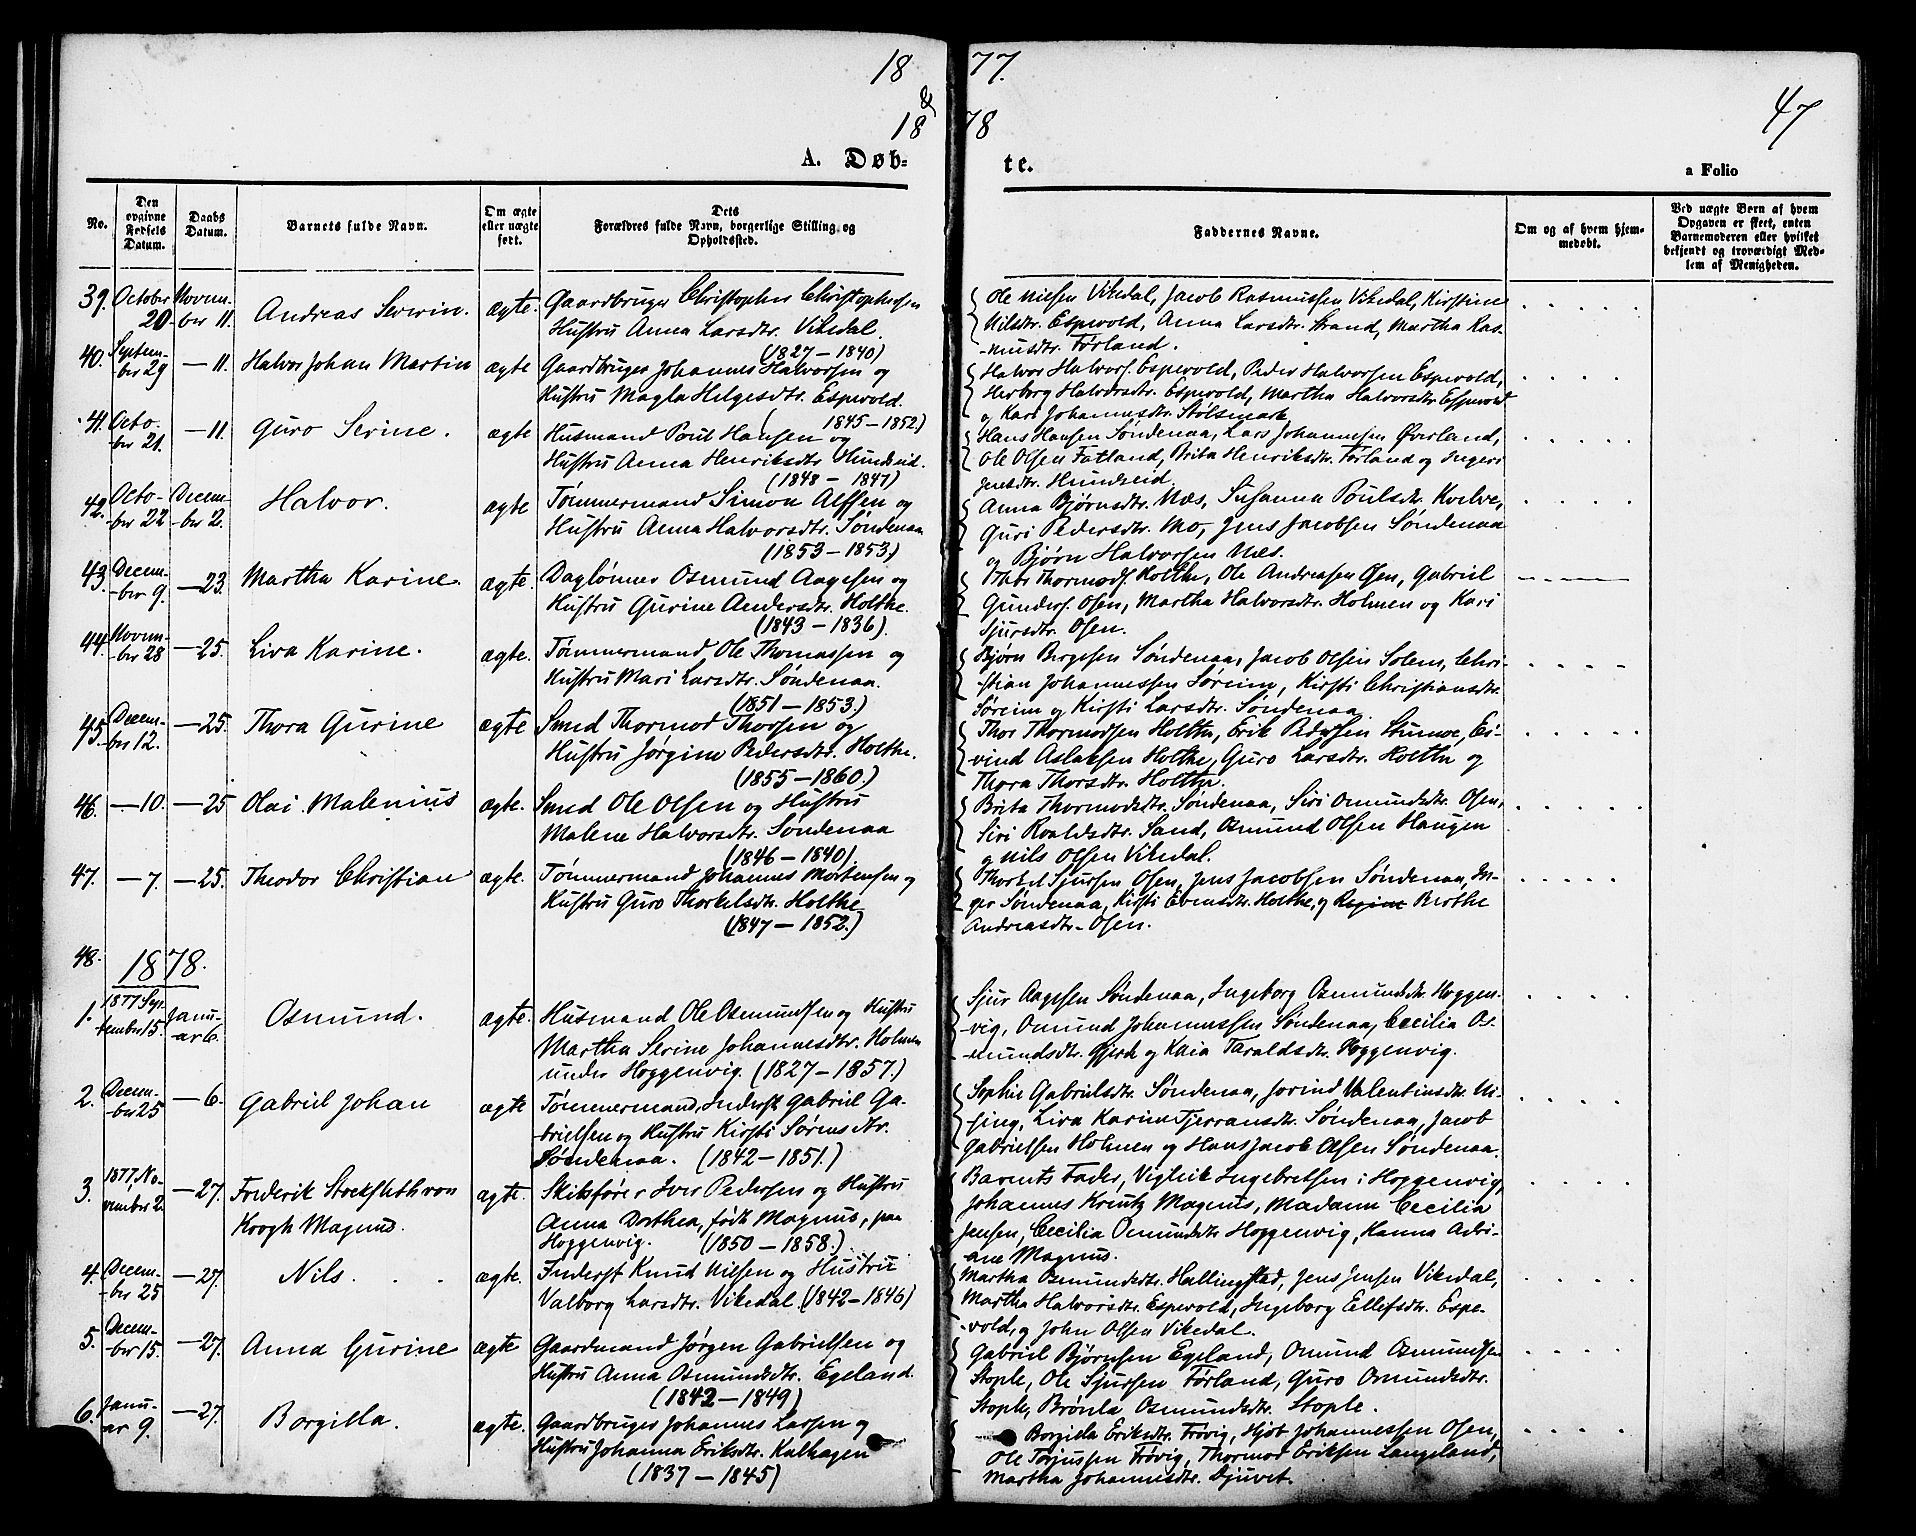 18 77.
& 
18 78
47
A. Døb- te.
a Folio
No.
Den opgivne Fødsels Datum.
Daabs Datum.
Barnets fulde Navn.
Om ægte eller uægte født.
Dets Forældres fulde Navn, borgerlige Stilling og Opholdssted.
Faddernes Navne.
Om og af hvem hjemmedøbt.
Ved uægte Børn af hvem Opgaven er skeet, enten Barnemoderen eller hvilket bekjendt og troværdigt Medlem af Menigheden.
39. October 20. Novem-ber 11. Andreas Severin. ægte. Gaardbruger Christopher Christophersen
Hustru Anna Larsdtr. Vikedal.
(1827 – 1840)
Ole Nielsen Vikedal, Jacob Rasmussen Vikedal, Kirstine
Nilsdtr. Espevold, Anna Larsdtr. Strand, Martha Ras-
-musdtr. Førland.
40. Septem-ber 29 – 11. Halvor Johan Martin ægte Gaardbruger Johannes Halvorsen og
Hustru Magla Helgesdtr. Espevold.
(1845 – 1852)
Halvor Halvors. Espevold, Peder Halvorsen Espevold,
Herborg Halvorsdtr. Espevold, Martha Halvorsdtr. Espevold
og Kari Johannesdtr. Stølsmark
41. Octo-ber 21. – 11. Guro Serine. ægte Husmand Poul Hansen og
Hustru Anna Henriksdtr. Hundseid.
(1848 – 1847)
Hans Hansen Søndenaa, Lars Johannesen Øverland,
Ole Olsen Fatland, Brita Henriksdtr. Førland og Ingeri
Jensdtr. Hundseid.
42. Octo-ber 22 Decem-ber 2. Halvor. ægte Tømmermand Simon Alffen og
Hustru Anna Halvorsdtr. Søndenaa
(1853 – 1853.)
Anna Bjørnsdtr. Næs, Susanna Poulsdtr. Kvelve,
Guri Pedersdtr. Mo, Jens Jacobsen Søndenaa
og Bjørn Halvorsen Næs.
43. Decem-ber 9. – 23. Martha Karine. ægte. Daglønner Osmund Aagesen og
Hustru Gurine Andersdtr. Holthe.
(1843 – 1836).
Thormods. Holthe, Ole Andreasen Osen, Gabriel
Gunders. Osen, Martha Halvorsdtr. Holmen og Kari
Sjursdtr. Osen.
44. Novem-ber 28 – 25. Liva Karine. ægte. Tømmermand Ole Thomassen og
Hustru Mari Larsdtr. Søndenaa.
(1851 – 1853.)
Bjørn Bergesen Søndenaa, Jacob Olsen Solem, Chri-
-stian Johannessen Søreim, Kirsti Christiansdtr.
Søreim og Kirsti Larsdtr. Søndenaa
45. Decem-ber 12. – 25. Thora Gurine ægte Smed Thormod Thorsen og
Hustru Jørgine Pedersdtr. Holthe.
(1855 – 1860.)
Thor Thormodsen Holthe, Erik Pedersen Stumoe, Ei-
vind Aslaksen Holthe, Guro Larsdtr. Holthe og
Thora Thorsdtr. Holthe.
46. – 10. – 25 Olai Malenius ægte. Smed Ole Olsen og Hustru
Malene Halvorsdtr. Søndenaa
(1846 – 1840).
Brita Thormodsdtr. Søndenaa, Siri Omundsdtr. Osen,
Siri Roaldsdtr. Sand, Osmund Olsen Haugen
og Nils Olsen Vikedal.
47. – 7. – 25. Theodor Christian ægte. Tømmermand Johannes Mortensen og
Hustru Guro Thorkelsdtr. Holthe
(1847 – 1852.)
Thorkel Sjursen Osen, Jens Jacobsen Søndenaa, In-
ger Søndenaa, Kirsti Evensdtr. Holthe, og Regine Berthe
Andreasdtr. Osen.
48.
1878.
1. 1877 Sep-tember 15. Janu-ar 6. Osmund. ægte. Husmand Ole Osmundsen og Hustru
Martha Serine Johannesdtr. Holmen
under Hoggenvig. (1827 – 1857.)
Sjur Aagesen Søndenaa, Ingeborg Osmundsdtr. Hoggen-
vig, Omund Johannessen Søndenaa, Cecilia Os-
mundsdtr. Gjerde og Kaia Taraldsdtr. Hoggenvig.
2. Decem-ber 25 – 6. Gabriel Johan ægte Tømmermand, Inderst Gabriel Ga-
brielsen og Hustru Kirsti Sørensdtr.
Søndenaa. (1842 – 1851.)
Sophie Gabrielsdtr. Søndenaa, Jorind Valentinsdtr.
Liva Karine Tjerransdtr. Søndenaa, Jacob
Gabrielsen Holmen og Hans Jacob Olsen Søndenaa.
3. 1877, No-vember 2. – 27. Frederik Stockfleth von
Krogh Magnus. ægte. Skibsfører Iver Pedersen og Hustru
Anna Dorthea, født Magnus, paa
Hoggenvig. (1850 – 1858.)
Barnets Fader, Vigleik Ingebretsen i Hoggenvig,
Johannes Kreutz Magnus, Madame Cecilia
Jensen, Cecilia Omundsdtr. Hoggenvig, Hanna Adri-
ane Magnus.
4. Decem-ber 25 – 27. Nils. ægte. Inderst Knud Nilsen og Hustru
Valborg Larsdtr. Vikedal. (1842 – 1846)
Martha Osmundsdtr. Hallingstad, Jens Jensen Vikedal,
Martha Halvorsdtr. Espevold, Ingeborg Ellefsdtr. Espe-
-vold, og John Olsen Vikedal.
5. Decem-ber 15. – 27. Anna Gurine ægte Gaardmand Jørgen Gabrielsen og
Hustru Anna Osmundsdtr. Egeland.
(1842 – 1849)
Gabriel Bjørnsen Egeland, Omund Osmundsen
Stople, Ole Sjursen Førland, Guro Osmundsdtr.
Stople, Brønla Osmundsdtr. Stople.
6. Janu-ar 9. – 27. Borgilla. ægte. Gaardbruger Johannes Larsen og
Hustru Johanna Eriksdtr. Kalhagen
(1837 – 1845)
Borgilla Eriksdtr. Frøvig, Johannessen Osen,
Ole Tørjussen Frøvig, Thormod Eriksen Langeland,
Martha Johannesdtr. Djuvet.